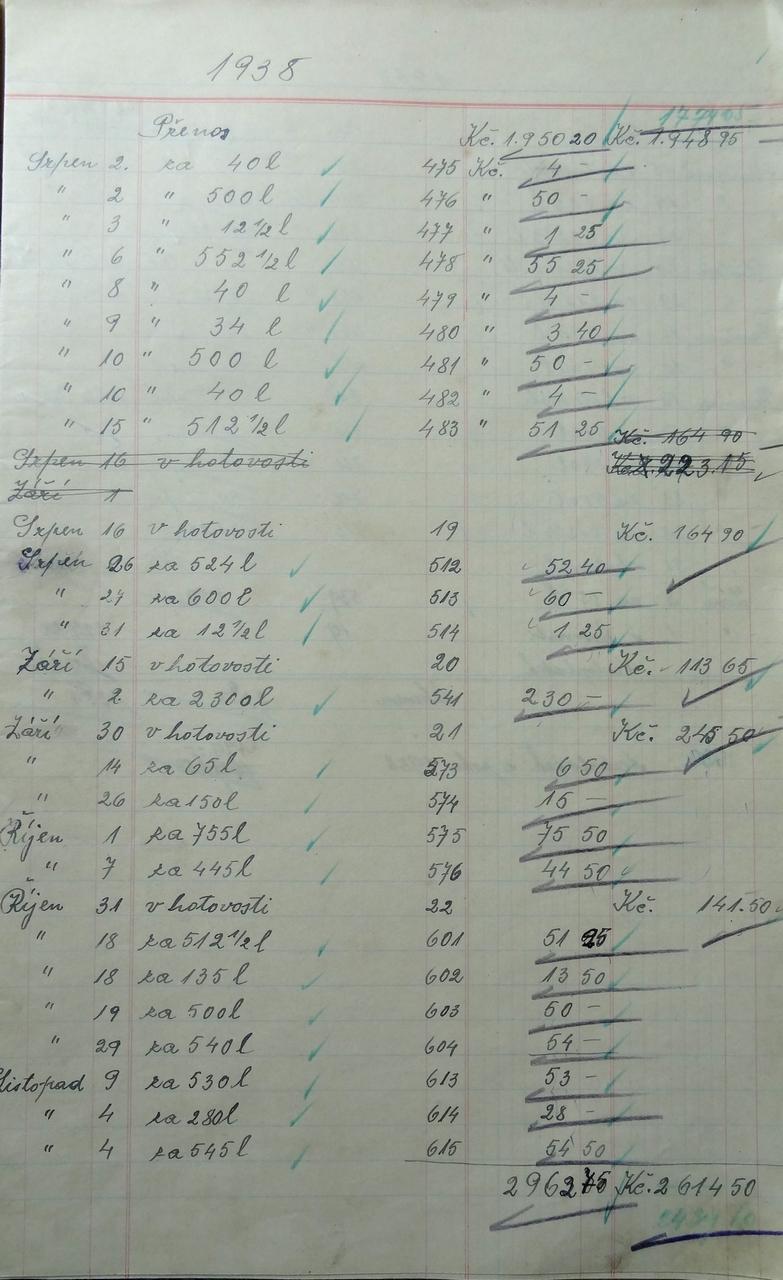 1938
Přenos Kč. 1.950 20 Kč. 1.948 95
Srpen 2. za 40 l 475 Kč. 4 -
" 2 " 500 l 476 " 50 -
" 3 " 12 1/2 l 477 " 1 25
" 6 " 552 1/2 l 478 " 55 25
" 8 " 40 l 479 " 4 -
" 9 " 34 l 480 " 3 40
" 10 " 500 l 481 " 50 -
" 10 " 40 l 482 " 4 -
" 15 " 512 1/2 l 483 " 51 25 Kč. 164 90
Srpen 16 v hotovosti Kč. 223.15
Září 1
Srpen 16 v hotovosti 19 Kč. 164 90
Srpen 26 za 524 l 512 52 40
" 27 za 600 l 513 60 -
" 31 za 12 1/2 l 514 1 25
Září 15 v hotovosti 20 Kč. 113 65
" 2 za 2300 l 541 230 -
Září 30 v hotovosti 21 Kč. 245 50
" 14 za 65 l 573 6 50
" 26 za 150 l 574 15 -
Říjen 1 za 755 l 575 75 50
" 7 za 445 l 576 44 50
Říjen 31 v hotovosti 22 Kč. 141.50
" 18 za 512 1/2 l 601 51 25
" 18 za 135 l 602 13 50
" 19 za 500 l 603 50 -
" 29 za 540 l 604 54 -
Listopad 9 za 530 l 613 53 -
" 4 za 280 l 614 28 -
" 4 za 545 l 615 54 50
2962 75 Kč. 2614 50